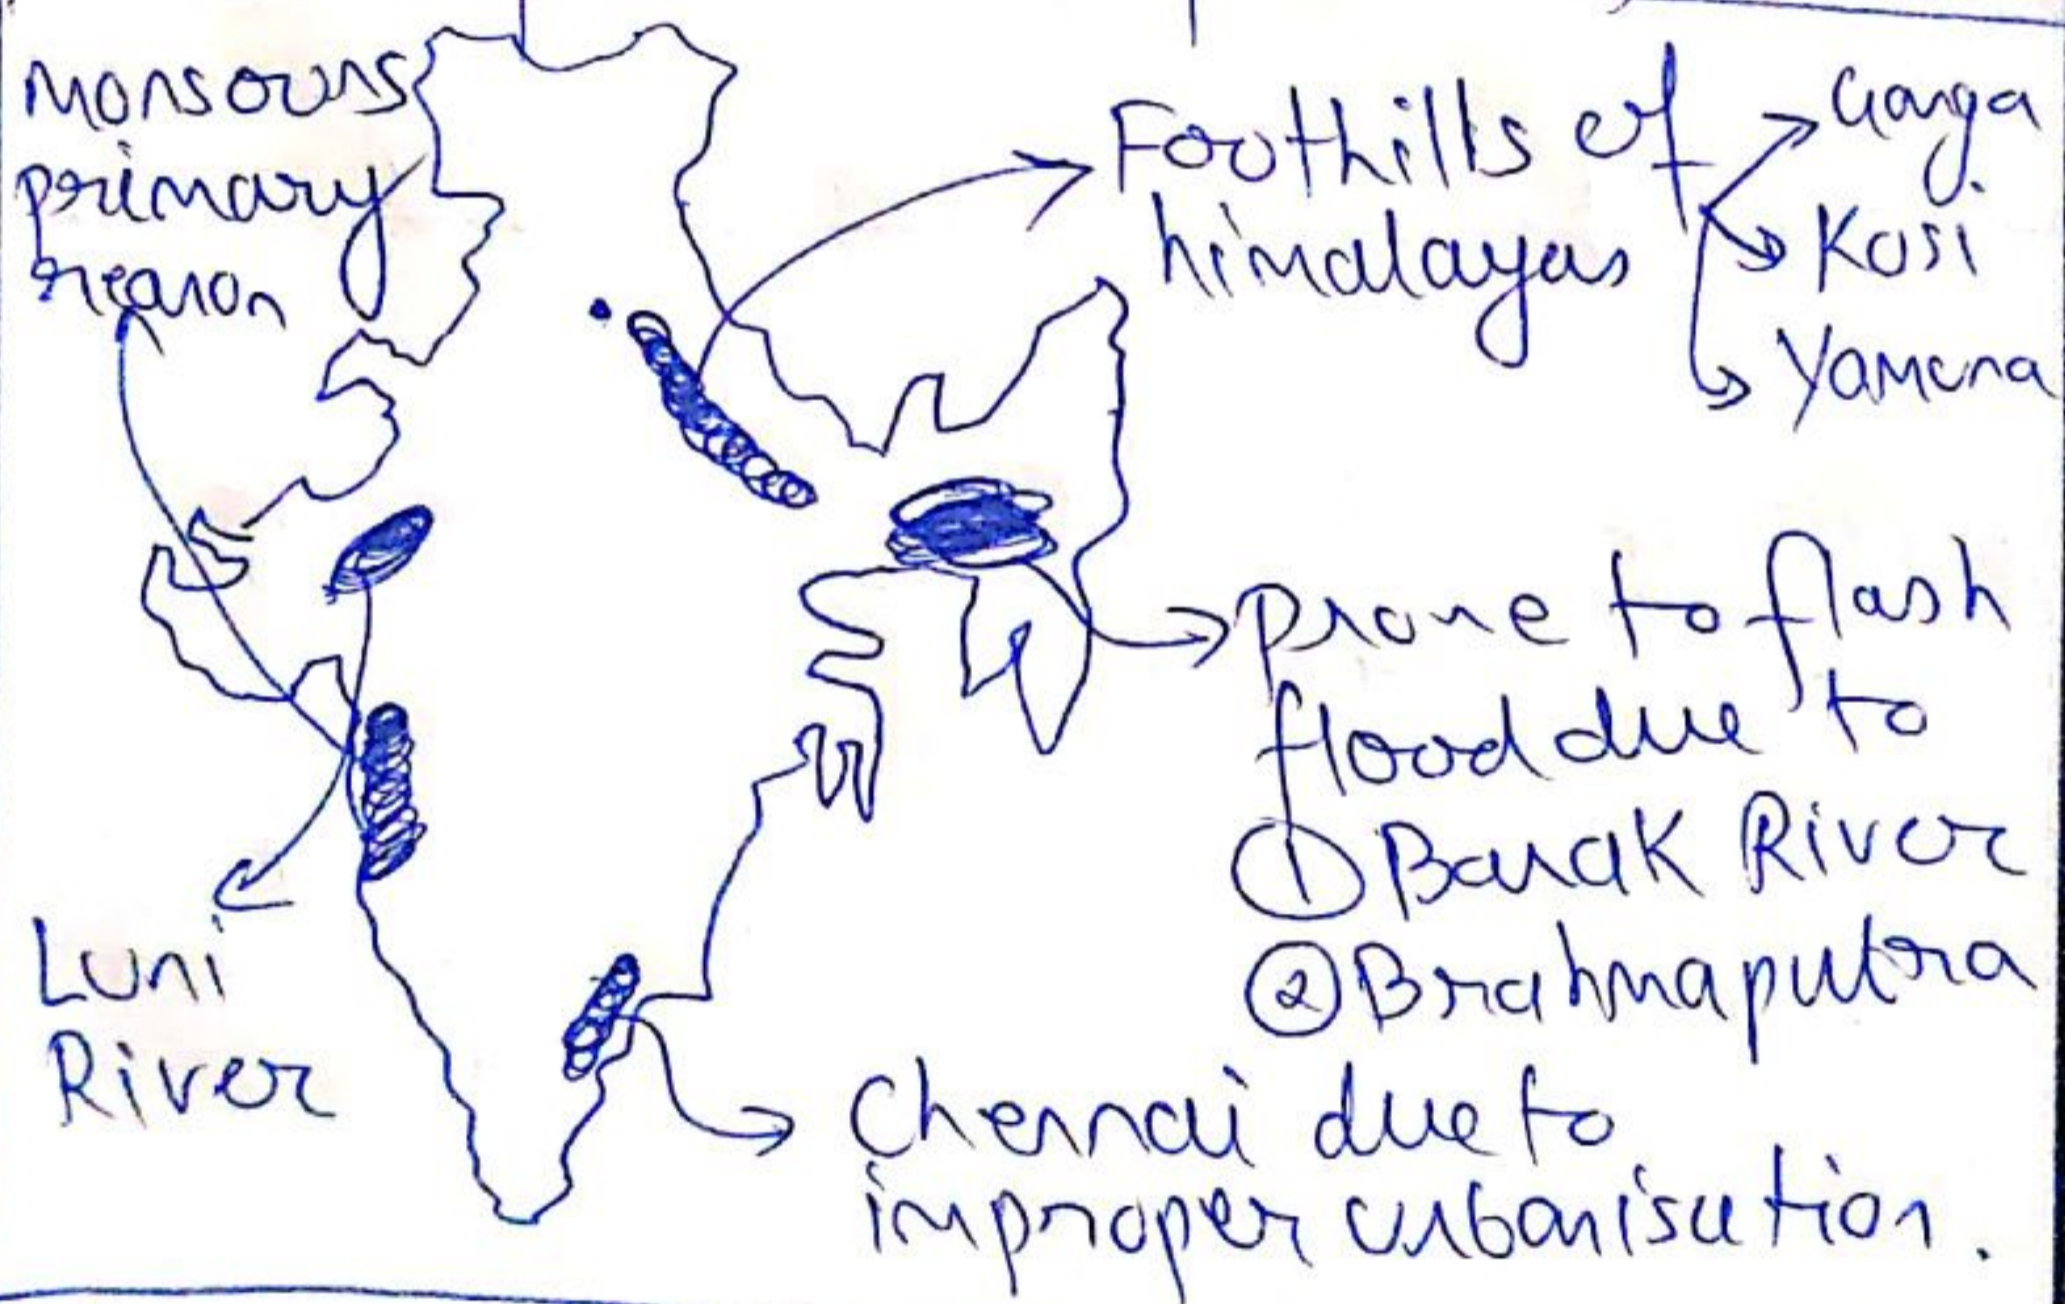 Monsoons
primary
reason
Foothills of
himalayas
Ganga
Kosi
Yamuna
Prone to flash
flood due to
① Barak River
② Brahmaputra
Luni
River
Chennai due to
improper urbanisation.